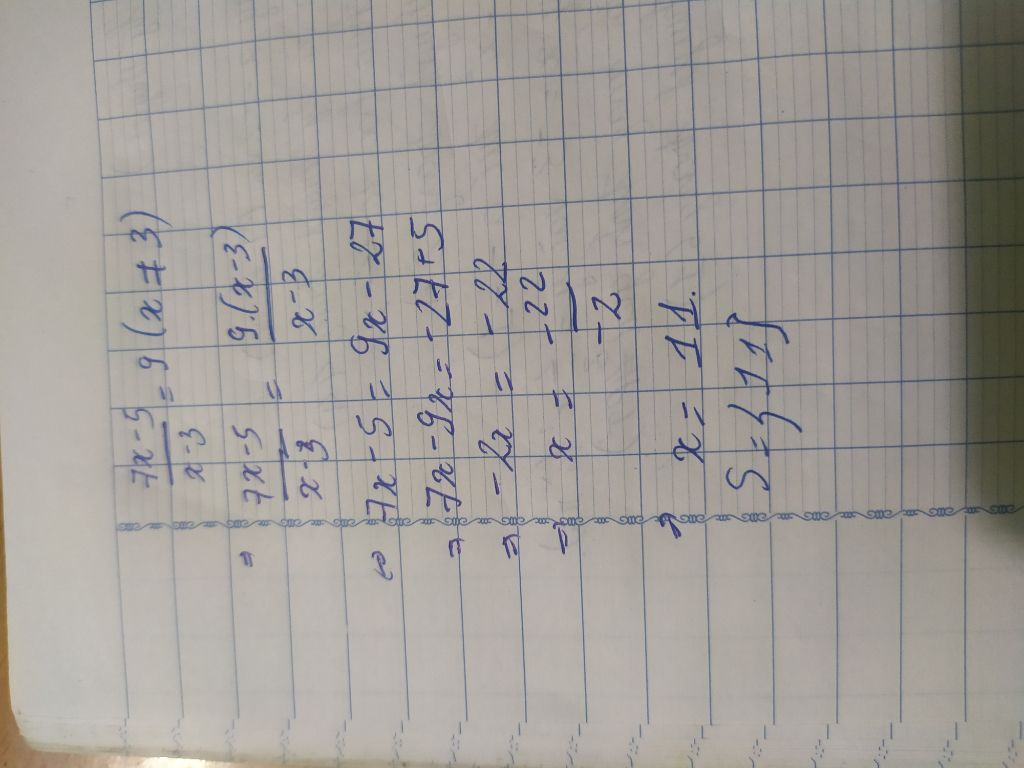 7x-5/x-3 = 9 (x ≠ 3)
⇒ 7x-5/x-3 = 9.(x-3)/x-3
⇔ 7x - 5 = 9x - 27
⇒ 7x - 9x = -27+5
⇒ -2x = -22
⇒ x = -22/-2
⇒ x = 11.
S = {11}